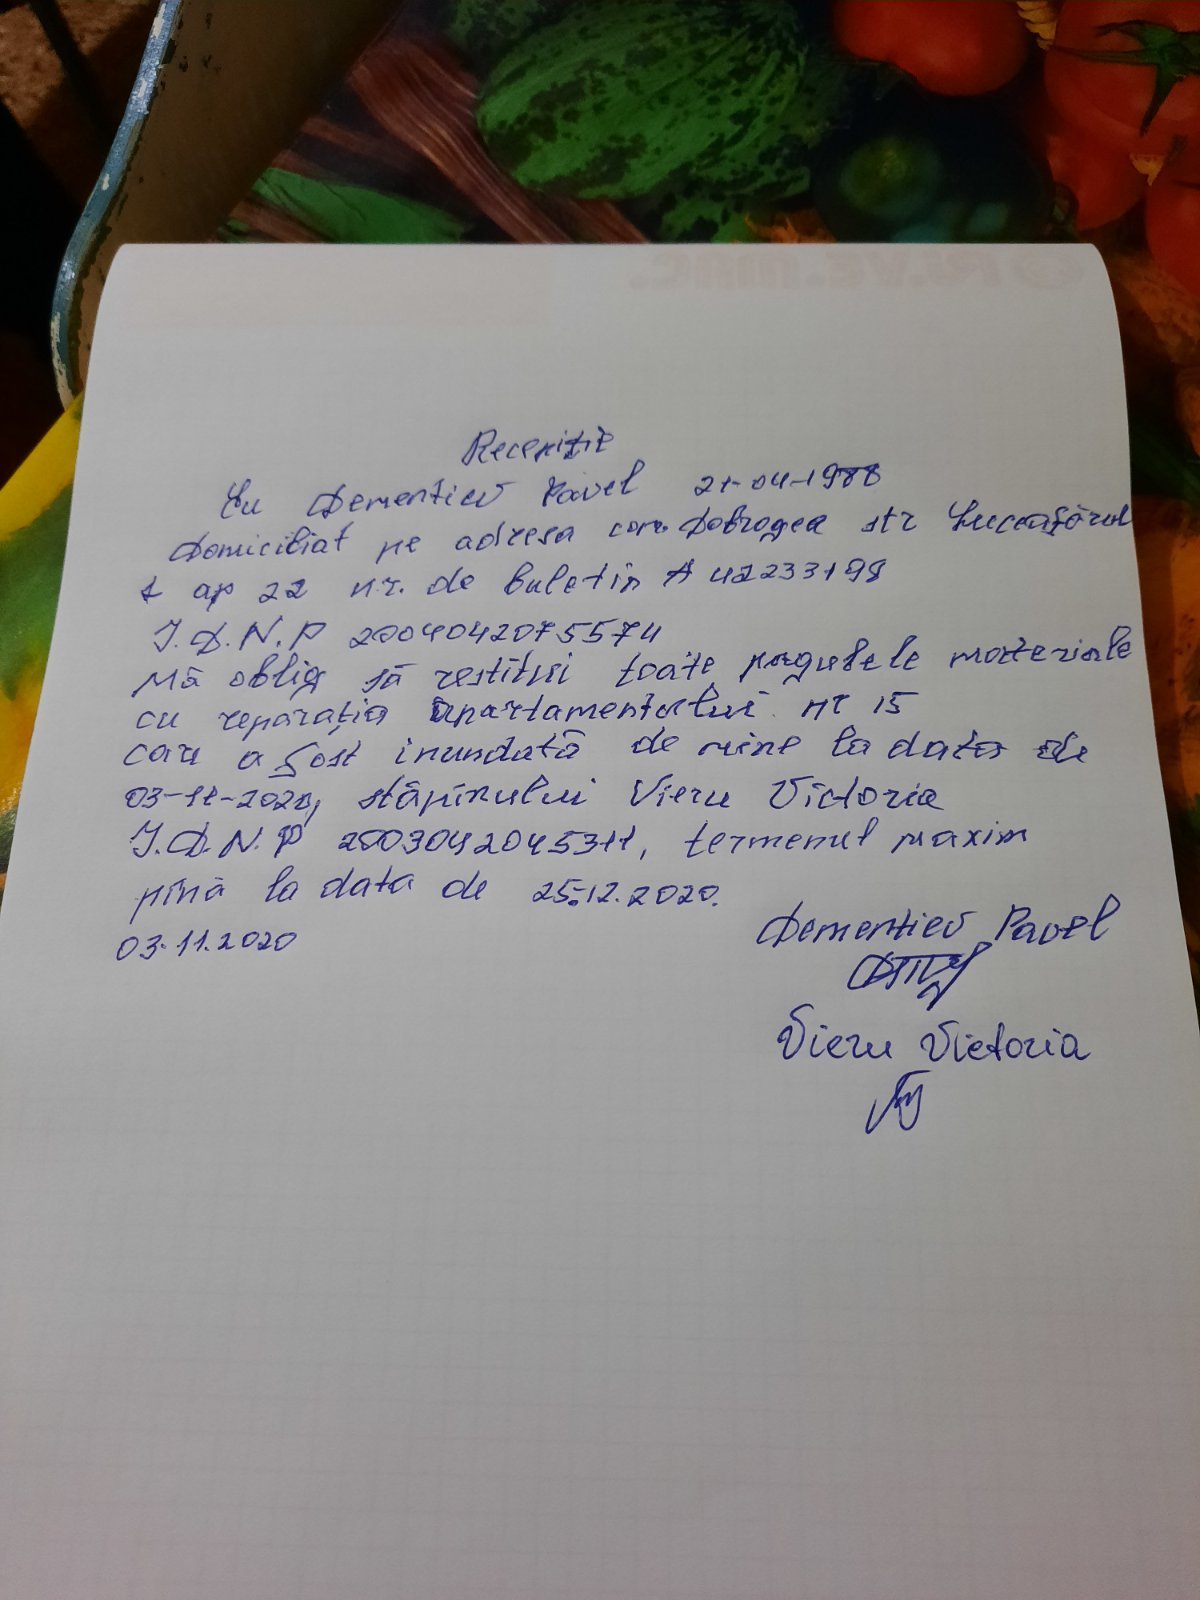 Recepiție
Eu Dementiev Pavel 21-04-1988
Domiciliat pe adresa com. Dobrogea str Luceafărul
1 ap 22 nr. de buletin A 42233198
I.D.N.P 2004042075574
Mă oblig să restitui toate pagubele materiale
cu reparația apartamentului nr 15
care a fost inundată de mine la data de
03-11-2020, stăpînului Vieru Victoria
I.D.N.P 2003042045311, termenul maxim
pînă la data de 25.12.2020.
03.11.2020
Dementiev Pavel
Vieru Victoria